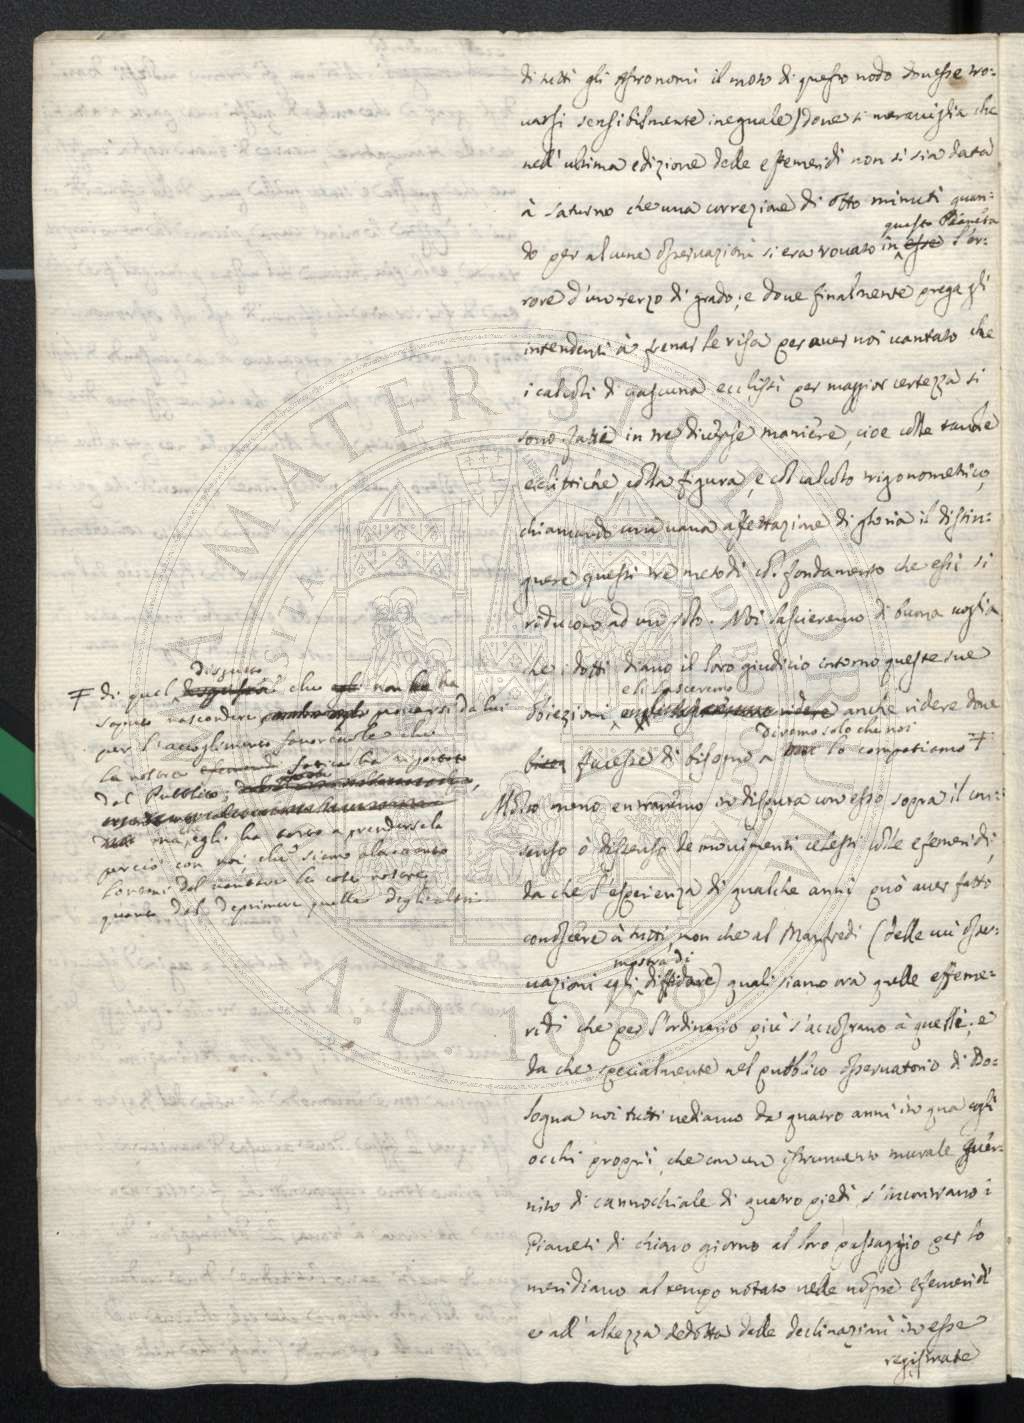 di tutti gli Astronomi il moto di questo nodo douesse tro-
uarsi sensibilmente ineguale) doue si merauiglia che
nell' ultima edizione delle efemeridi non si sia data
à Saturno che una correzione di otto minuti quan-
questo Pianeta
do per alcune osseruazioni si era trouato in esse l'er-
rore d'un terzo di grado; e doue finalmente prega gli
intendenti à frenar le risa per auer noi uantato che
i calcoli di ciascuna ecclissi per maggior certezza si
sono fatti in tre diuerse maniere, cioe colle tauole
ecclittiche, colla figura, e col calcolo trigonometrico,
chiamando una uana affettazione di gloria il distin-
guere questi tre metodi col fondamento che essi si
riducono ad un solo. Noi lascieremo di buona uoglia
che i dotti diano il loro giudicio intorno queste sue
e li lasceremo
obiezioni, anche ridere doue
diremo solo che noi
facesse di bisogno a lo compatiamo Ŧ
Molto meno entraremo in disputa con esso sopra il con-
senso ò dissenso de mouimenti celesti colle efemeridi,
da che l'esperienza di qualche anni può auer fatto
conoscere à tutti, non che al Manfredi (delle cui osser-
mostra di
uazioni egli diffidare) quali siano ora quelle effeme-
ridi che per l'ordinario più s'accostano à quelle; e
da che specialmente nel pubblico osseruatorio di Bo-
logna noi tutti uediamo da quatro anni in qua cogli
occhi propri, che con un istrumento murale guer-
nito di cannochiale di quatro piedi, s'incontrano i
Pianeti di chiaro giorno al loro passaggio per lo
meridiano al tempo notato nelle nostre efemeridi
e all' altezza dedotta dalle declinazioni in esse
registrate
disgusto
Ŧ di quel che non ha
saputo nascondere procacciarsi da lui
per l'accoglimento fauoreuole che
la nostra fatica ha riportato
dal Pubblico;
ma egli ha torto a prendersela
perciò con noi, che siamo altretanto
lontani dal uantare le cose nostre
quanto dal deprimere quelle degli altri